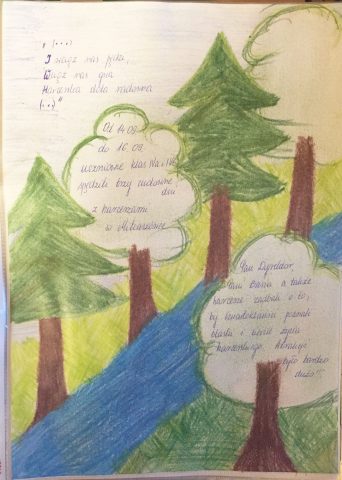 „(...)
I wciąż nas pyka,
Wciąż nas gna
Harcerska dola radosna
(...)"
Od 14.09.
do 16.09.
uczniowie klas IVa i IVb
spędzili trzy cudowne
dni
z harcerzami
w
Pan Dyrektor,
Pani Basia a także
harcerze zadbali o to,
by czwartoklasiści poznali
blaski i cienie życia
harcerskiego. Atrakcji
było bardzo
dużo!!!